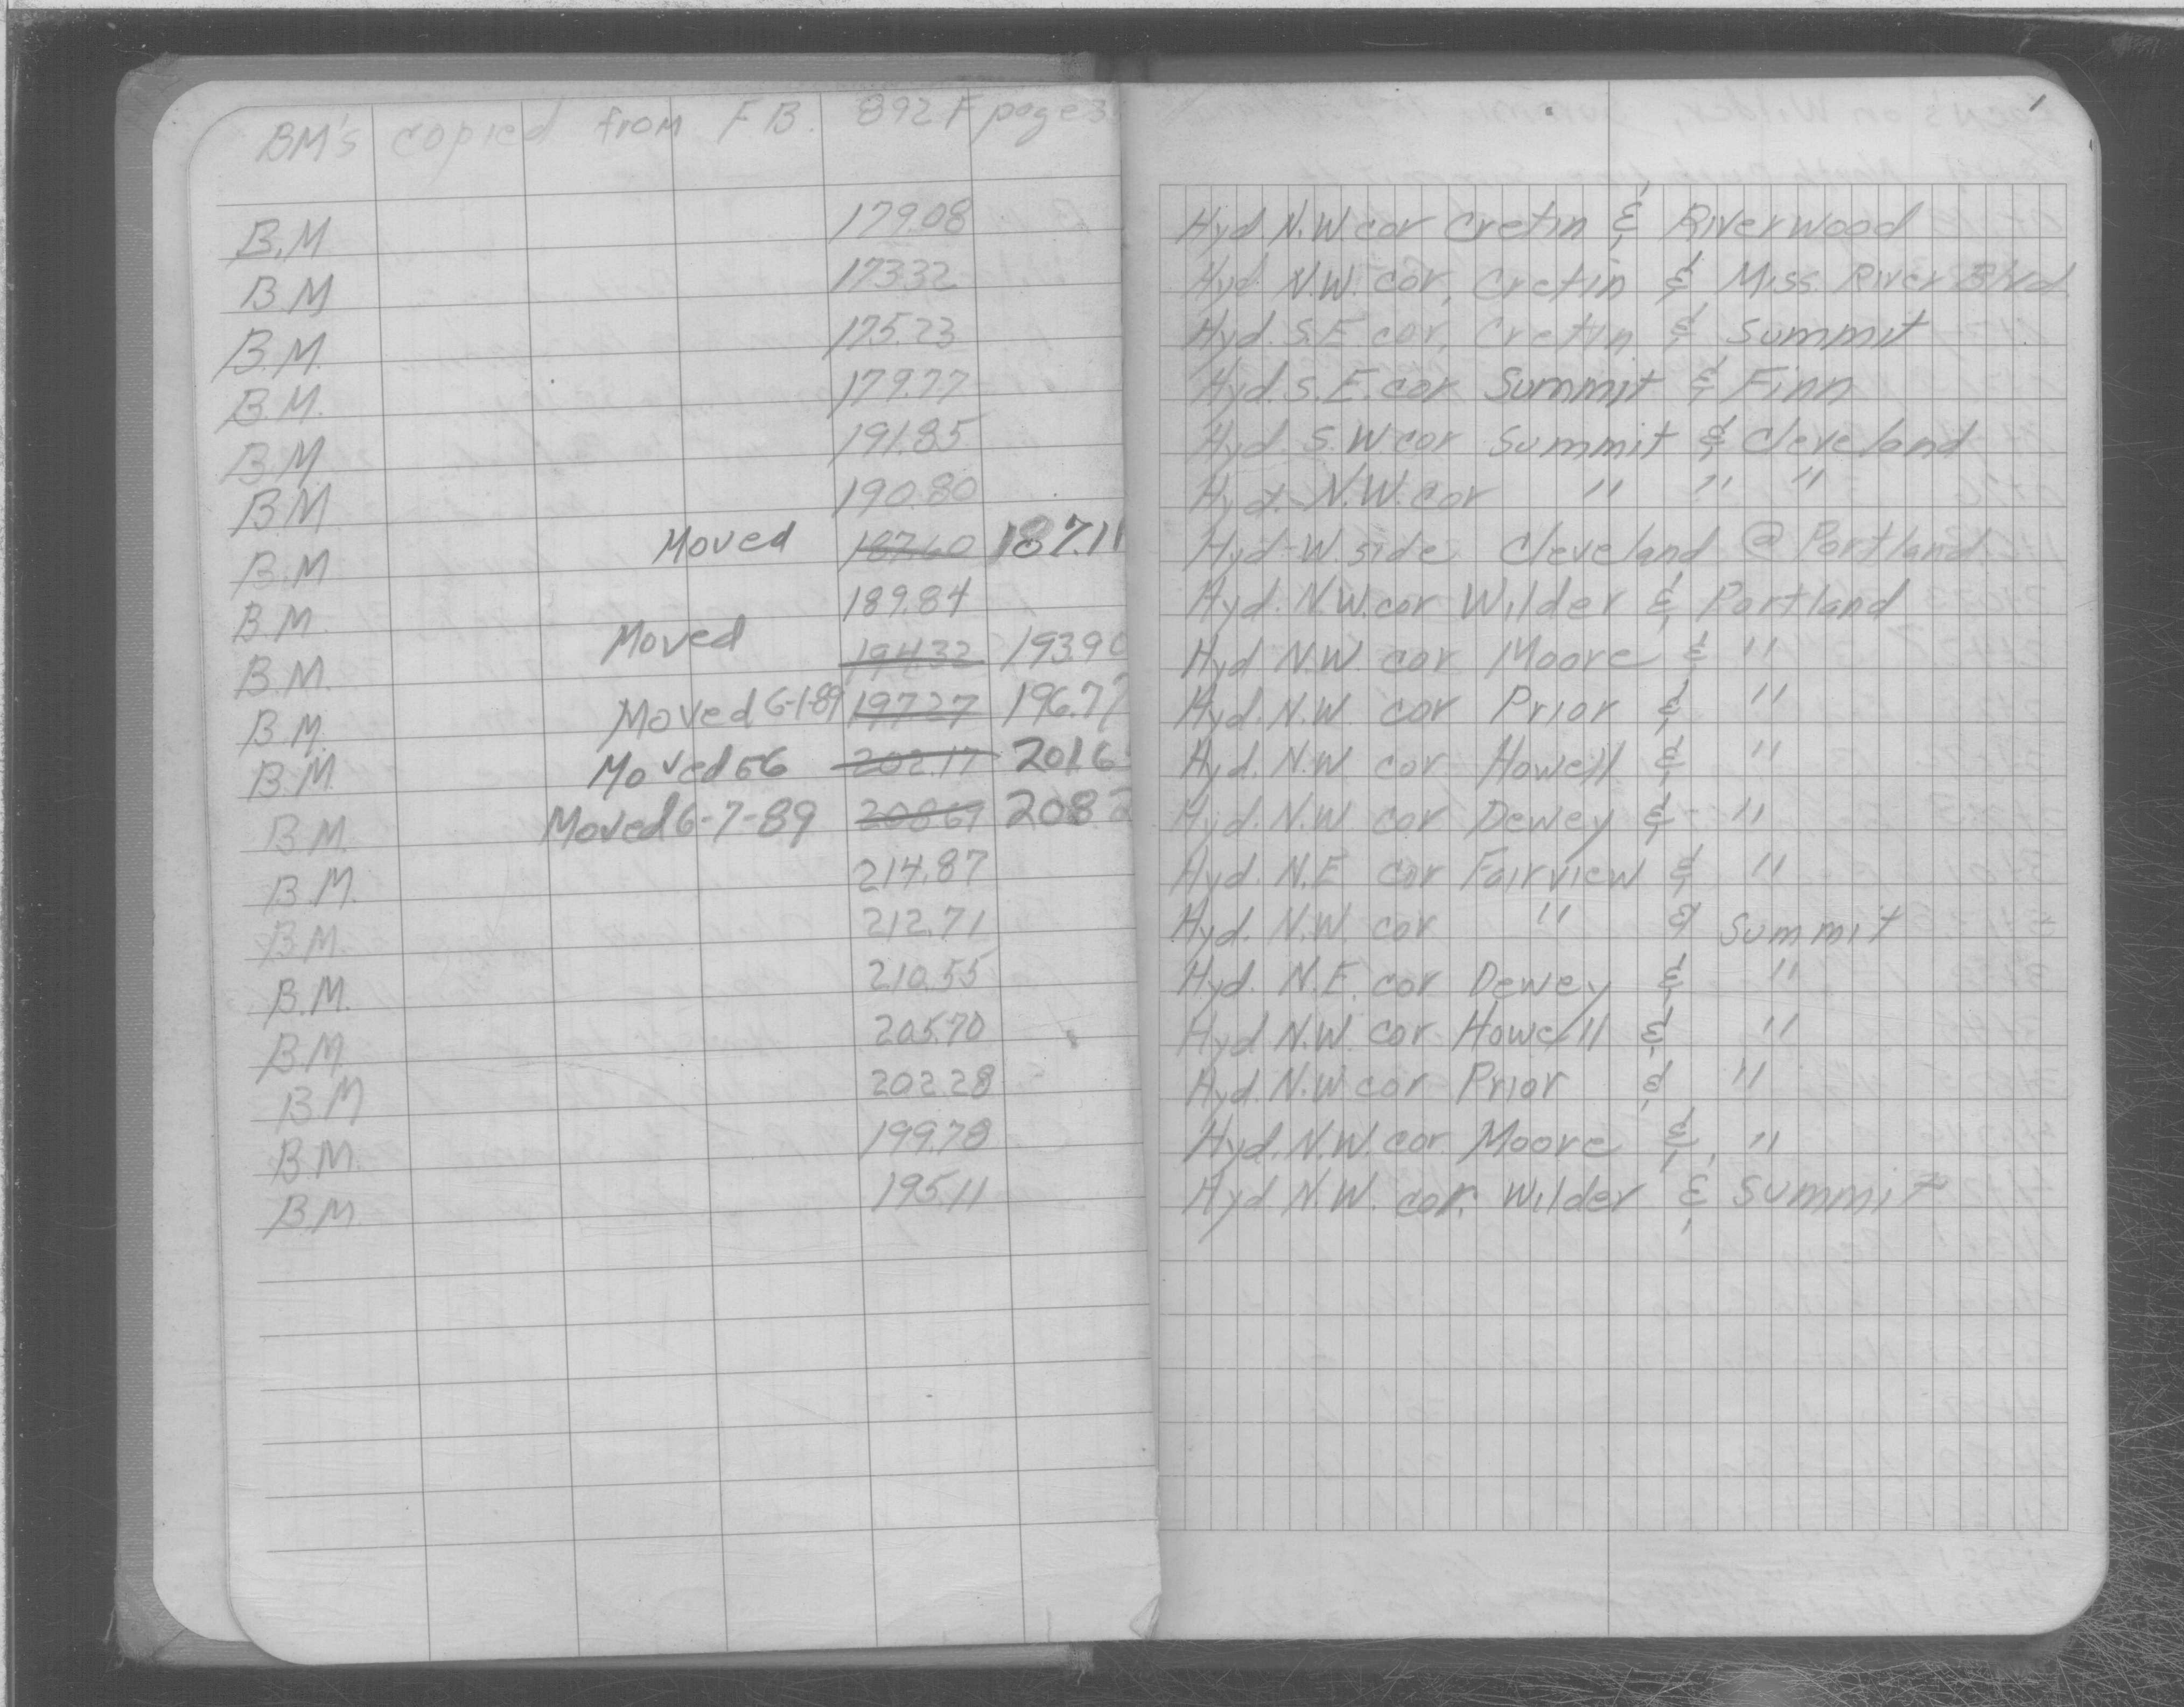 BM's copied from F.B. 892 F page 3
1
B.M 179.08 Hyd. N.W. cor Cretin & Riverwood
B.M 173.32 Hyd. N.W. cor, Cretin & Miss. River Blvd.
B.M. 175.23 Hyd. S.E cor, Cretin & Summit
B.M. 179.77 Hyd. S.E. cor Summit & Finn
B.M. 191.85 Hyd. S.W cor Summit & Cleveland
B.M 190.80 Hyd. N.W. cor " " "
B.M Moved 187.60 187.11 Hyd-W. side Cleveland @ Portland
B.M. 189.84 Hyd. N.W. cor Wilder & Portland
B.M. Moved 194.32 193.90 Hyd N.W. cor Moore & "
B.M. Moved 6-1-89 197.27 196.77 Hyd. N.W. cor Prior & "
B.M. Moved 56 202.17 201.6 Hyd. N.W. cor Howell & "
B.M. Moved 6-7-89 208.69 208.2 Hyd. N.W. cor Dewey & "
B.M. 214.87 Hyd. N.E cor Fairview & "
B.M. 212.71 Hyd. N.W. cor " & Summit
B.M. 210.55 Hyd. N.E. cor Dewey & "
B.M. 205.70 Hyd N.W. cor Howell & "
B.M 202.28 Hyd. N.W cor Prior & "
B.M. 199.78 Hyd. N.W. cor. Moore & "
B.M. 195.11 Hyd N.W. cor. Wilder & Summit